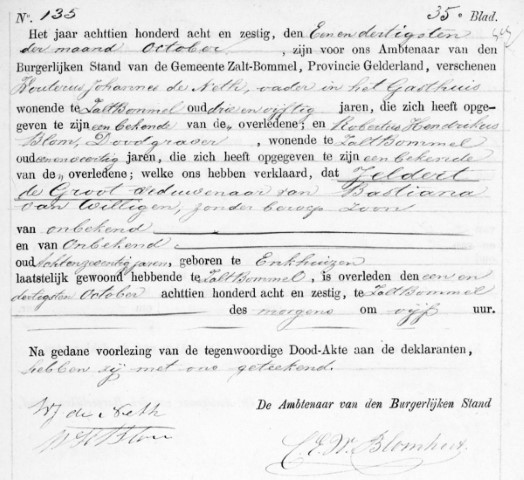 N.º 135 35e Blad.
Het jaar achttien honderd acht en zestig, den Een en dertigsten
der maand October, zijn voor ons Ambtenaar van den
Burgerlijken Stand van de Gemeente Zalt-Bommel, Provincie Gelderland, verschenen
Wouterus Johannes de Neth, vader in het Gasthuis
wonende te ZaltBommel oud drie en vijftig jaren, die zich heeft opge-
geven te zijn een bekende van de overledene; en Robertus Hendrikus
Blom, Doodgraver, wonende te ZaltBommel
oud jaren, die zich heeft opgegeven te zijn een bekende
van de overledene; welke ons hebben verklaard, dat Feldert
de Groot weduwenaar van Bastiana
van Willigen, zonder beroep zoon
van onbekend
en van Onbekend
oud achtenzeventig jaren, geboren te Enkhuizen
laatstelijk gewoond hebbende te ZaltBommel, is overleden den een en
dertigsten October achttien honderd acht en zestig, te ZaltBommel
des morgens om vijf uur.
Na gedane voorlezing van de tegenwoordige Dood-Akte aan de deklaranten,
hebben zij met ons geteekend.
WJ de Neth
De Ambtenaar van den Burgerlijken Stand
Blom
C.E.W. Blomhert